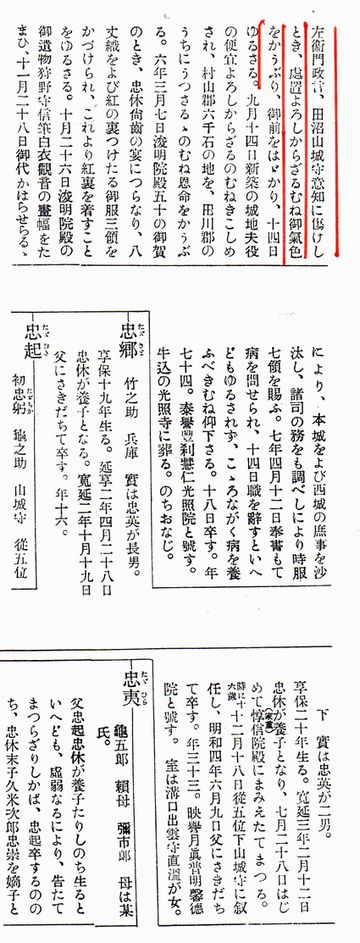 左衞門政言、田沼山城守意知に傷けし
とき、處置よろしからざるむね御氣色
をかうぶり、御前をはゞかり、十四日
ゆるさる。九月十四日新築の城地夫役
の便宜よろしからざるのむねきこしめ
され、村山郡六千石の地を、田川郡の
うちにうつさるゝのむね恩命をかうぶ
る。六年三月七日浚明院殿五十の御賀
のとき、忠休尙齒の宴につらなり、八
丈織をよび紅の裏つけたる御服三領を
かづけられ、これより紅裏を着すこと
をゆるさる。十月二十六日浚明院殿の
御遺物狩野守信筆白衣觀音の畫幅をた
まひ、十一月二十八日御代かはらせらるゝ
により、本城をよび西城の庶事を沙
汰し、諸司の務をも調べしにより時服
七領を賜ふ。七年四月十二日奉書もて
病を問せられ、十四日職を辭すといへ
どもゆるされず、こゝろながく病を養
ふべきむね仰下さる。十八日卒す。年
七十四。泰譽豐刹慧仁光照院と號す。
牛込の光照寺に葬る。のちおなじ。
忠鄕 たゞさと
竹之助 兵庫 實は忠英が長男。
享保十九年生る。延享二年四月二十八日
忠休が養子となる。寬延二年十月十九日
父にさきだちて卒す。年十六。
忠起 たゞおき
初忠躬 たゞちか 龜之助 山城守 從五位
下 實は忠英が二男。
享保二十年生る。寬延三年二月十二日
忠休が養子となり、七月二十八日はじ
めて惇信院殿(家重)にまみえたてまつる。
時に十六歲十二月十八日從五位下山城守に叙
任し、明和四年六月九日父にさきだち
て卒す。年三十三。映譽月眞普明馨德
院と號す。 室は溝口出雲守直溫が女。
忠夷 たゞひら
龜五郎 賴母 彌市郎 母は某
氏。
父忠起忠休が養子たりしのち生ると
いへども、虛弱なるにより、告たて
まつらざりしかば、忠起卒するのの
ち、忠休末子久米次郎忠崇を嫡子と